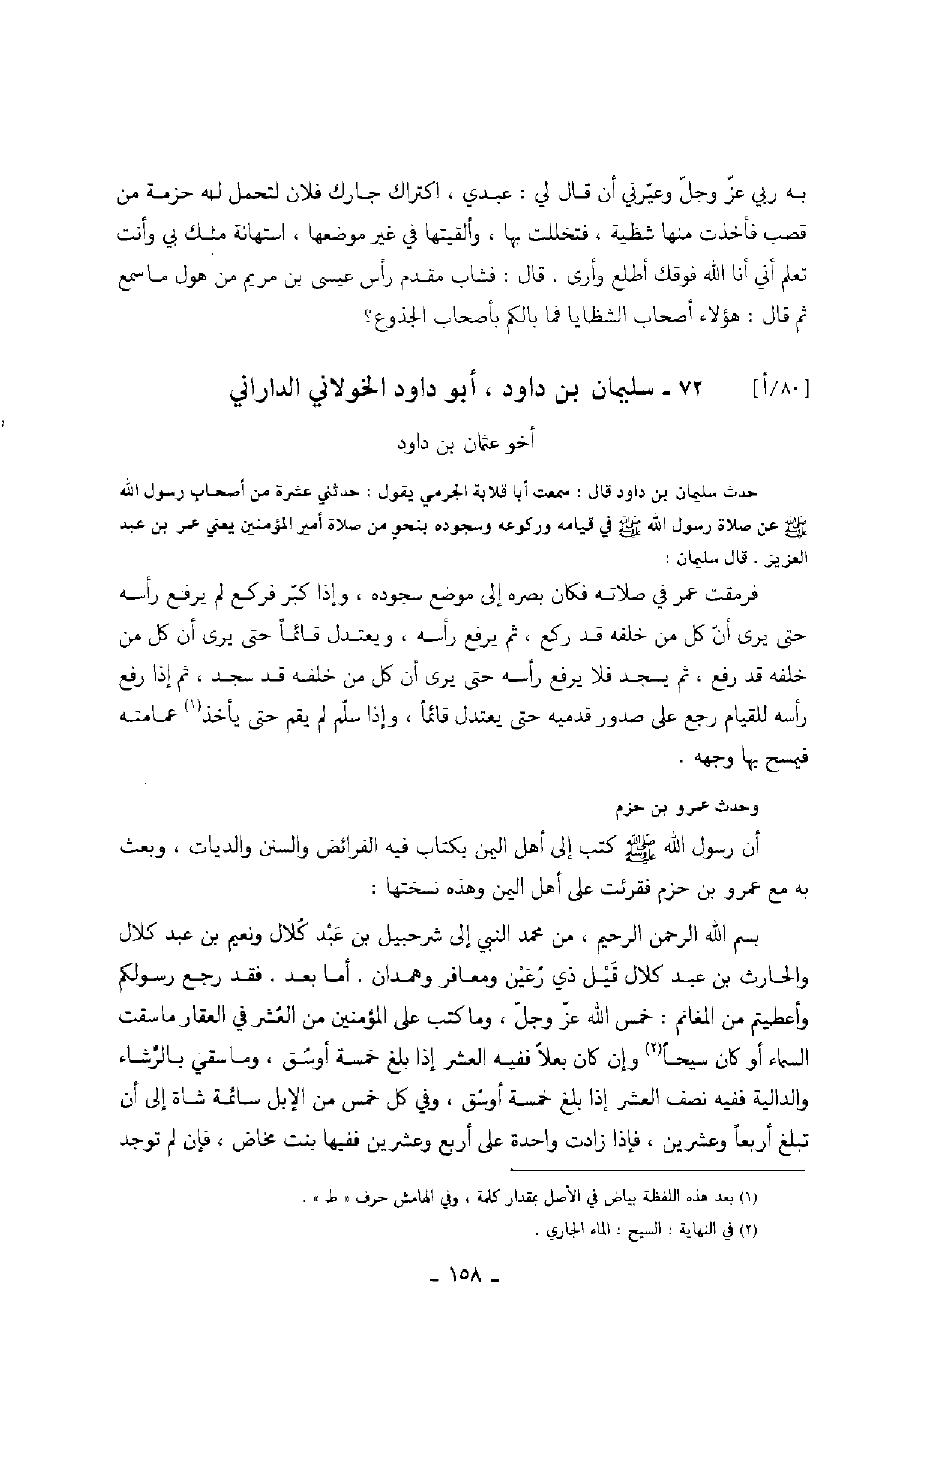 به ربي عزّ وجلّ وعيّرني أن قال لي : عبدي ، اكتراك جارك فلان لتحمل له حزمة من
قصب فأخذت منها شظية ، فتخللت بها ، وألقيتها في غير موضعها ، استهانة منك بي وأنت
تعلم أني أنا الله فوقك أطلع وأرى . قال : فشاب مقدم رأس عيسى بن مريم من هول ما سمع
ثم قال : هؤلاء أصحاب الشظايا فما بالكم بأصحاب الجذوع؟
[٨٠/أ] ٧٢ ـ سليمان بن داود ، أبو داود الخولاني الداراني
أخو عثمان بن داود
حدث سليمان بن داود قال : سمعت أبا قلابة الجرمي يقول : حدثني عشرة من أصحاب رسول الله
ﷺ عن صلاة رسول الله ﷺ في قيامه وركوعه وسجوده بنحو من صلاة أمير المؤمنين يعني عمر بن عبد
العزيز . قال سليمان :
فرمقت عمر في صلاته فكان بصره إلى موضع سجوده ، وإذا كبّر فركع لم يرفع رأسه
حتى يرى أنّ كل من خلفه قد ركع ، ثم يرفع رأسه ، ويعتدل قائماً حتى يرى أن كل من
خلفه قد رفع ، ثم يسجد فلا يرفع رأسه حتى يرى أن كل من خلفه قد سجد ، ثم إذا رفع
رأسه للقيام رجع على صدور قدميه حتى يعتدل قائماً ، وإذا سلّم لم يقم حتى يأخذ(١) عمامته
فيمسح بها وجهه .
وحدث عمرو بن حزم
أن رسول الله ﷺ كتب إلى أهل اليمن بكتاب فيه الفرائض والسنن والديات ، وبعث
به مع عمرو بن حزم فقرئت على أهل اليمن وهذه نسختها :
بسم الله الرحمن الرحيم ، من محمد النبي إلى شرحبيل بن عَبْد كُلال ونعيم بن عبد كلال
والحارث بن عبد كلال قَيْل ذي رُعَيْن ومعافر وهمدان . أما بعد . فقد رجع رسولكم
وأعطيتم من المغانم : خمس الله عزّ وجلّ ، وما كتب على المؤمنين من العُشر في العقار ما سقت
السماء أو كان سيحاً(٢) وإن كان بعلاً ففيه العشر إذا بلغ خمسة أوسُق ، وما سقي بالرِّشاء
والدالية ففيه نصف العشر إذا بلغ خمسة أوسُق ، وفي كل خمس من الإبل سائمة شاة إلى أن
تبلغ أربعاً وعشرين ، فإذا زادت واحدة على أربع وعشرين ففيها بنت مخاض ، فإن لم توجد
(١) بعد هذه اللفظة بياض في الأصل بمقدار كلمة ، وفي الهامش حرف « ط » .
(٢) في النهاية : السيح : الماء الجاري .
ـ ١٥٨ ـ